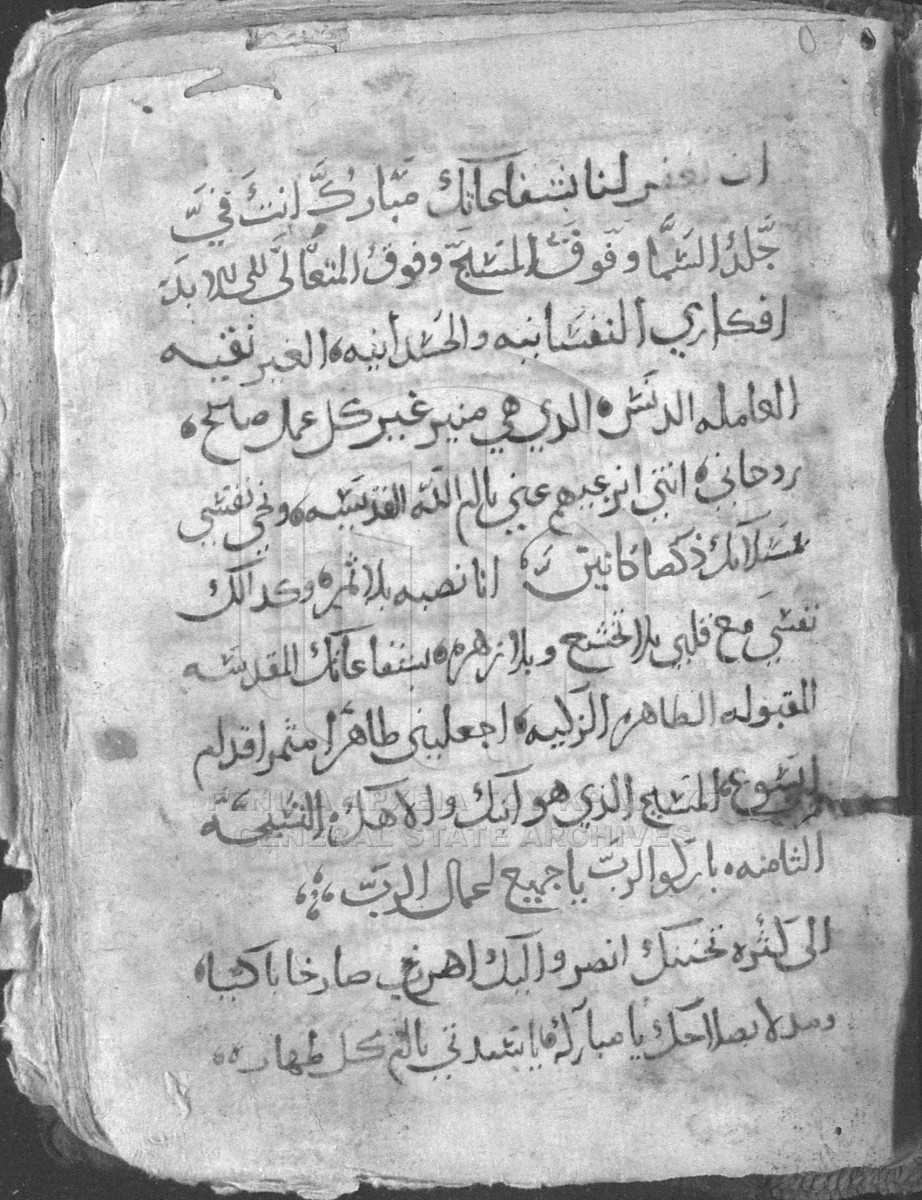 ان تغفر لنا بشفاعاتك مباركٌ انتَ في
جَلَدْ السَّما وفوقَ المسَبّح وفوق المتعالَى للابد
افكاري النفسانيه والجسدانيه، الغير نقيه
العامله الدنس، الذي هي منير غير كل عمل صالح،
روحاني، انتي انزعيهم عني يا ام الله القديسه، ونجي نفسي
ذكصا كانين انا نصبه بلا ثمر، وكدالك
نفسي مع قلبي بلا تخشع وبلا زهره، بشفاعاتك المقدسه
المقبوله الطاهره اجعليني طاهرًا مثمر اقدام
ايسوع المسيح الذي هو ابنك والاهك، التسبحه
الثامنه، باركوا الربّ يا جميع اعمال الربّ
الى كثره تحننك انصر واليك اهرب صارخا باكيا،
يا مباركه يا سيدتي يا ام كل طهاره،
ΓΕΝΙΚΑ ΑΡΧΕΙΑ
GENERAL STATE ARCHIVES